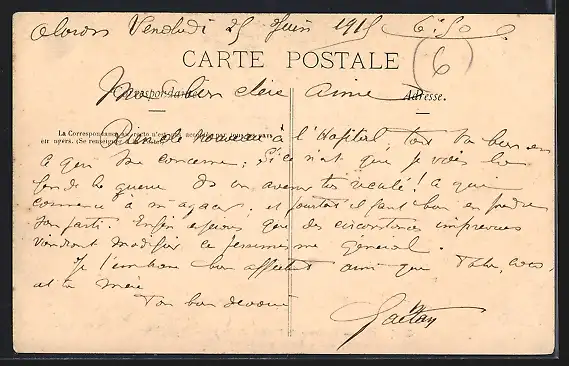 Oloron Vendredi 25 Juin 1915
CARTE POSTALE
6
Correspondance Adresse.
Ma bien chère aimée
La Correspondance au recto n'est pas acceptée par tous les pays
étrangers. (Se renseigner à la Poste).
Rien de nouveau à l'Hôpital, tout va bien en
ce qui me concerne; si ce n'est que je vois la
fin de la guerre d'un avenir très reculé! ce qui
commence à m'agacer; et pourtant il faut bien en prendre
son parti. Enfin espérons que des circonstances imprévues
viendront modifier ce pessimisme général.
Je t'embrasse bien affectueusement ainsi que
et ta mère
Ton bien dévoué
Gaëtan